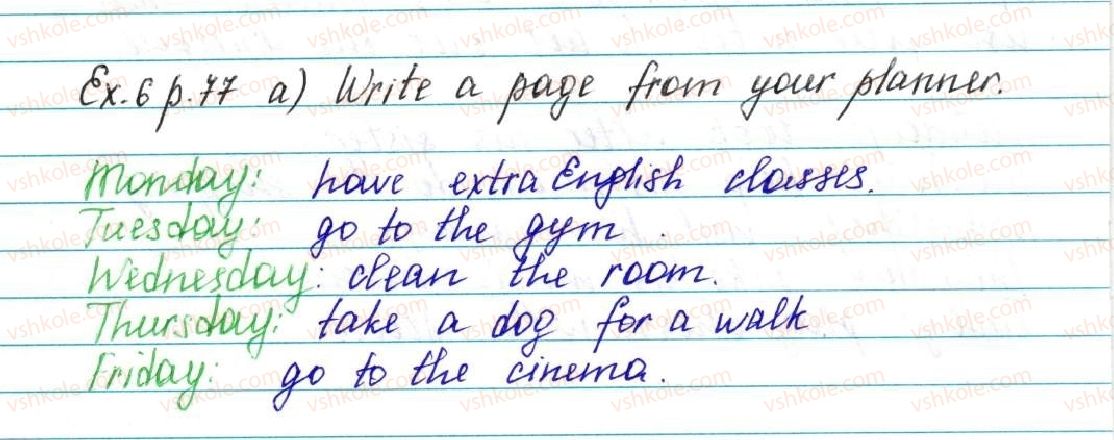 Ex. 6 p. 77 a) Write a page from your planner.
Monday: have extra English classes.
Tuesday: go to the gym.
Wednesday: clean the room.
Thursday: take a dog for a walk
Friday: go to the cinema.